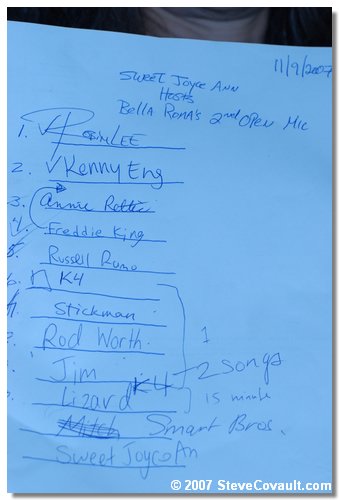 11/9/2007
Sweet Joyce Ann
Hosts
Bella Roma's 2nd Open Mic
1. Robin Lee
2. Kenny Eng
3. Annie
4. Freddie King
5. Russell Romo
6. K4
7. Stickman
Rod Worth
1
Jim K4 2 songs
Lizard 15 minute
Mitch Smart Bros.
Sweet Joyce An
© 2007 SteveCovault.com